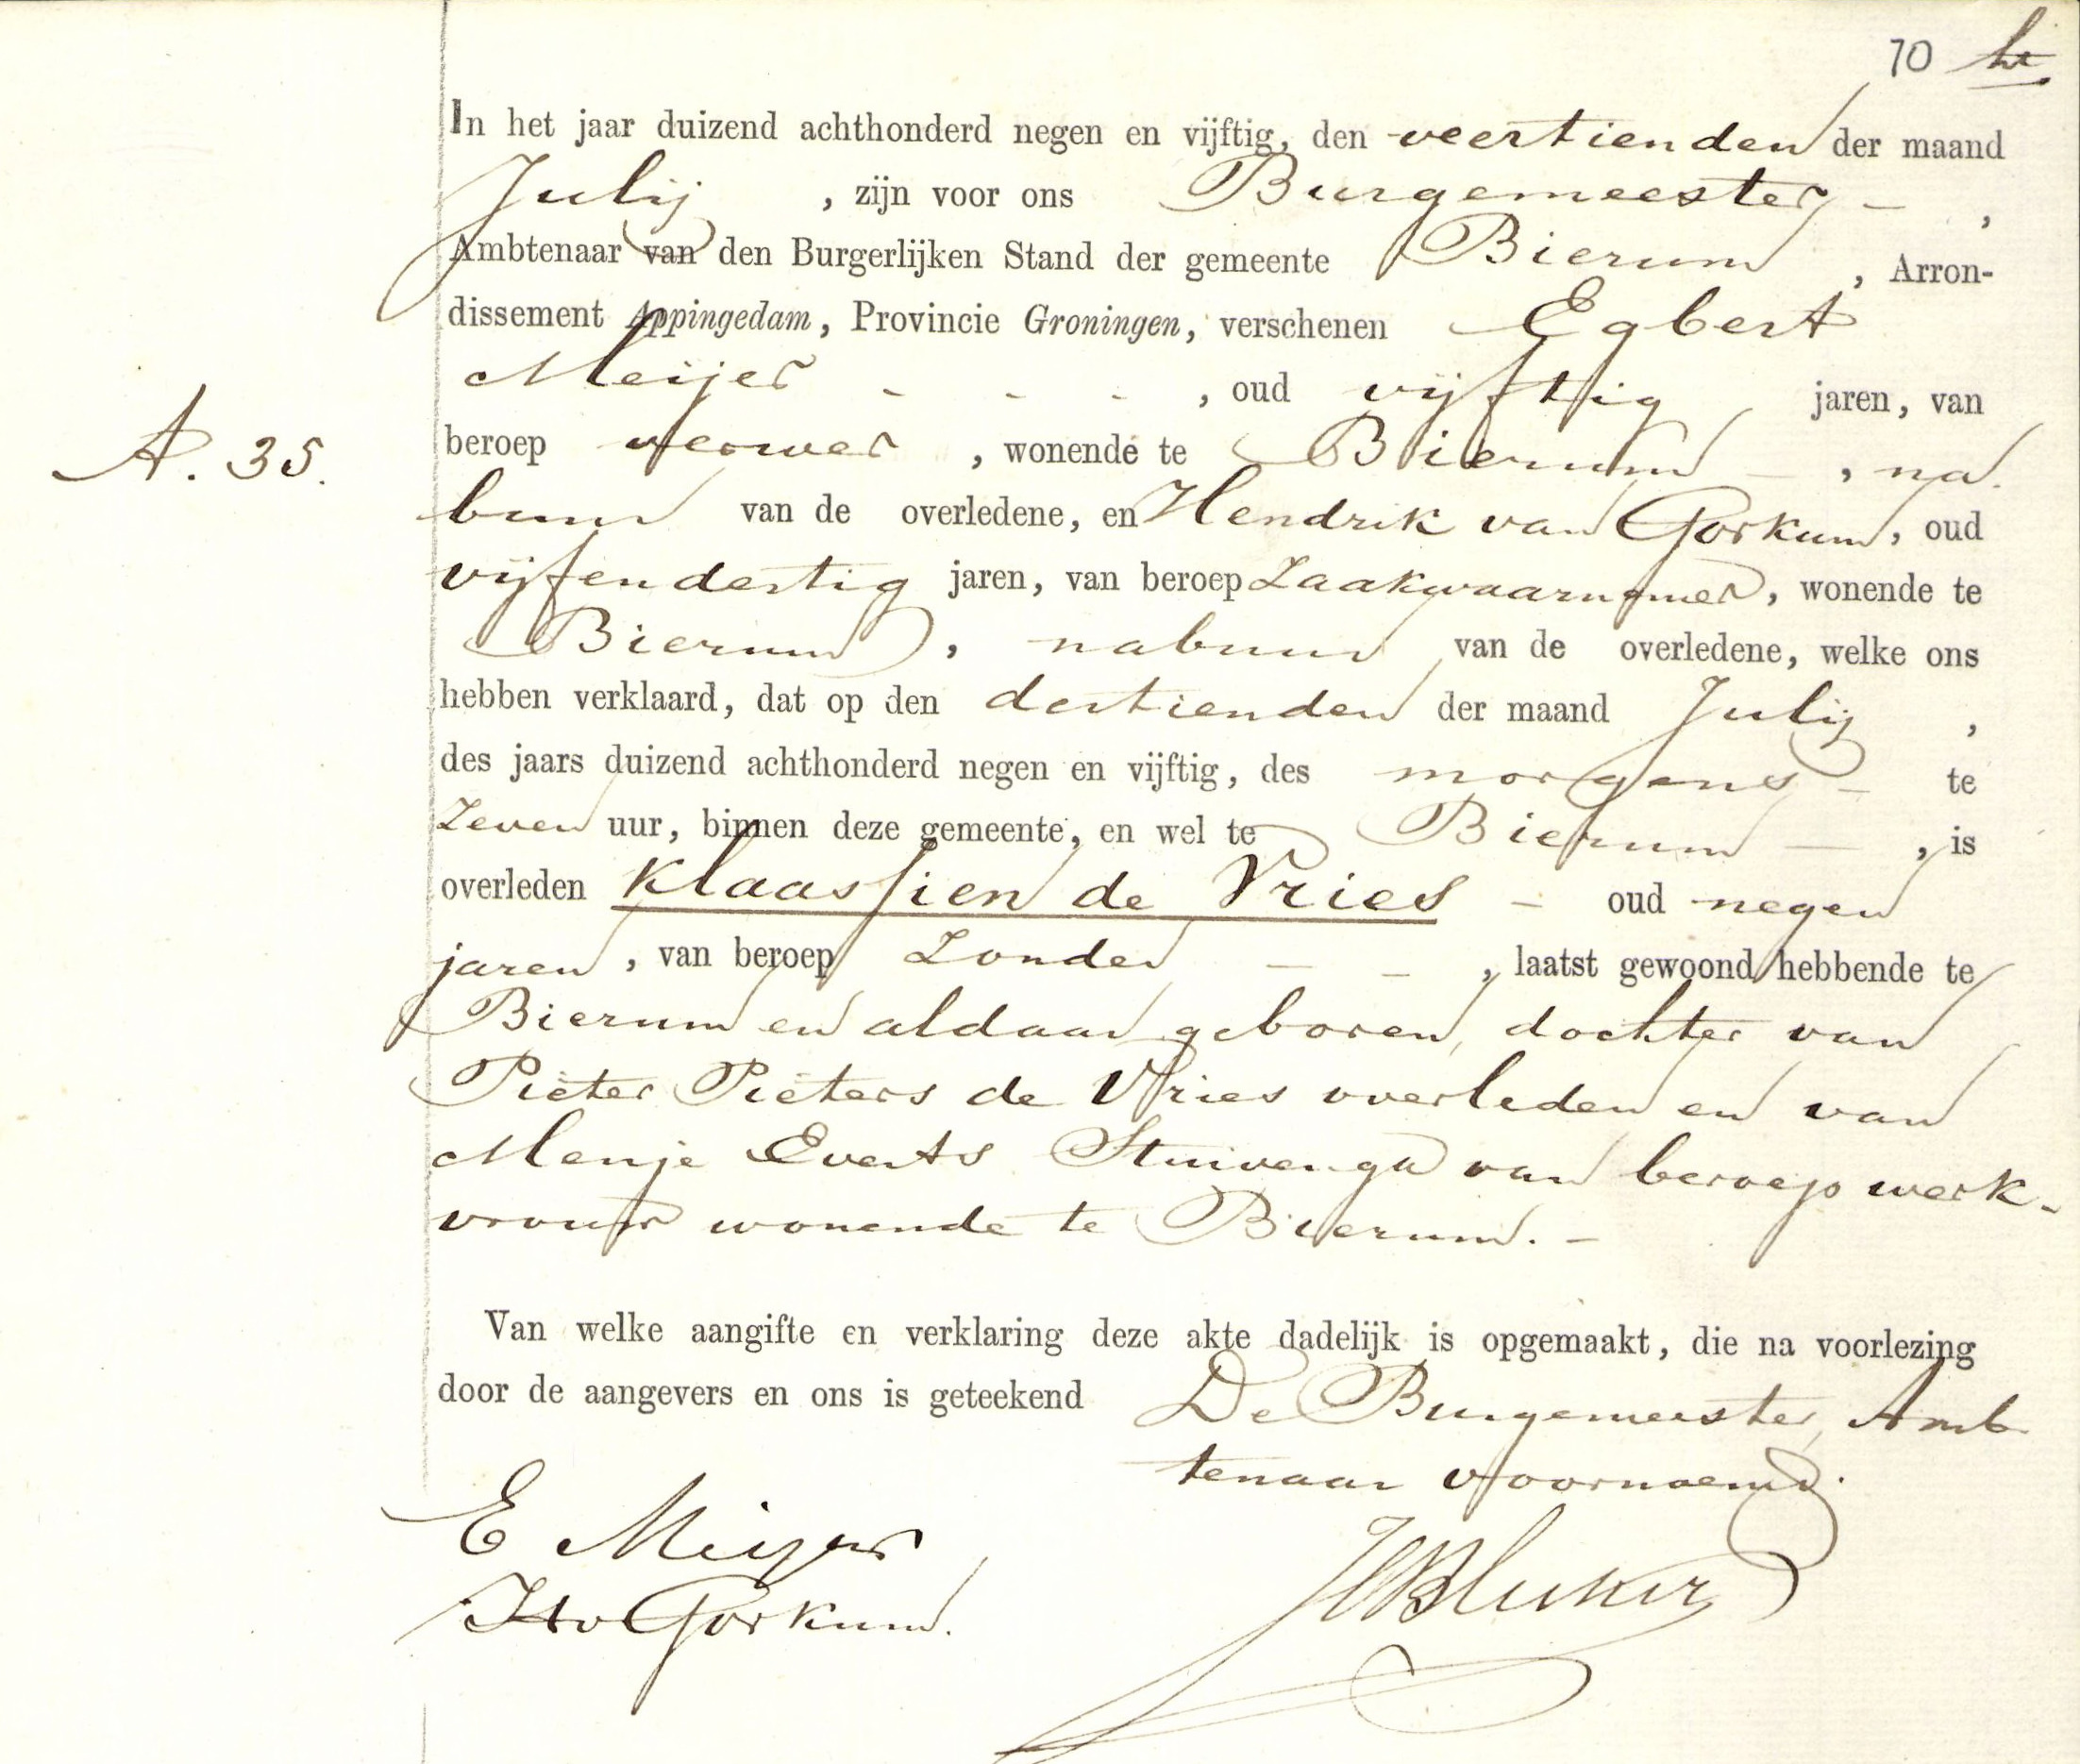 70
In het jaar duizend achthonderd negen en vijftig, den veertienden der maand
Julij , zijn voor ons Burgemeester - ,
Ambtenaar van den Burgerlijken Stand der gemeente Bierum , Arron-
dissement Appingedam, Provincie Groningen, verschenen Egbert
Meijer - - - , oud vijftig jaren, van
A. 35.
beroep verwer , wonende te Bierum - , na
buur van de overledene, en Hendrik van Gorkum, oud
vijfendertig jaren, van beroep Zaakwaarnemer, wonende te
Bierum , nabuur van de overledene, welke ons
hebben verklaard, dat op den dertienden der maand Julij ,
des jaars duizend achthonderd negen en vijftig, des morgens - te
Zeven uur, binnen deze gemeente, en wel te Bierum - , is
overleden Klaassien de Vries - oud negen
jaren , van beroep Zonder - - , laatst gewoond hebbende te
Bierum en aldaar geboren, dochter van
Pieter Pieters de Vries overleden en van
Menje Everts Stuivenga van beroep werk-
vrouw wonende te Bierum. -
Van welke aangifte en verklaring deze akte dadelijk is opgemaakt, die na voorlezing
door de aangevers en ons is geteekend De Burgemeester, Amb
tenaar voornoemd.
E Meijer
H v Gorkum.